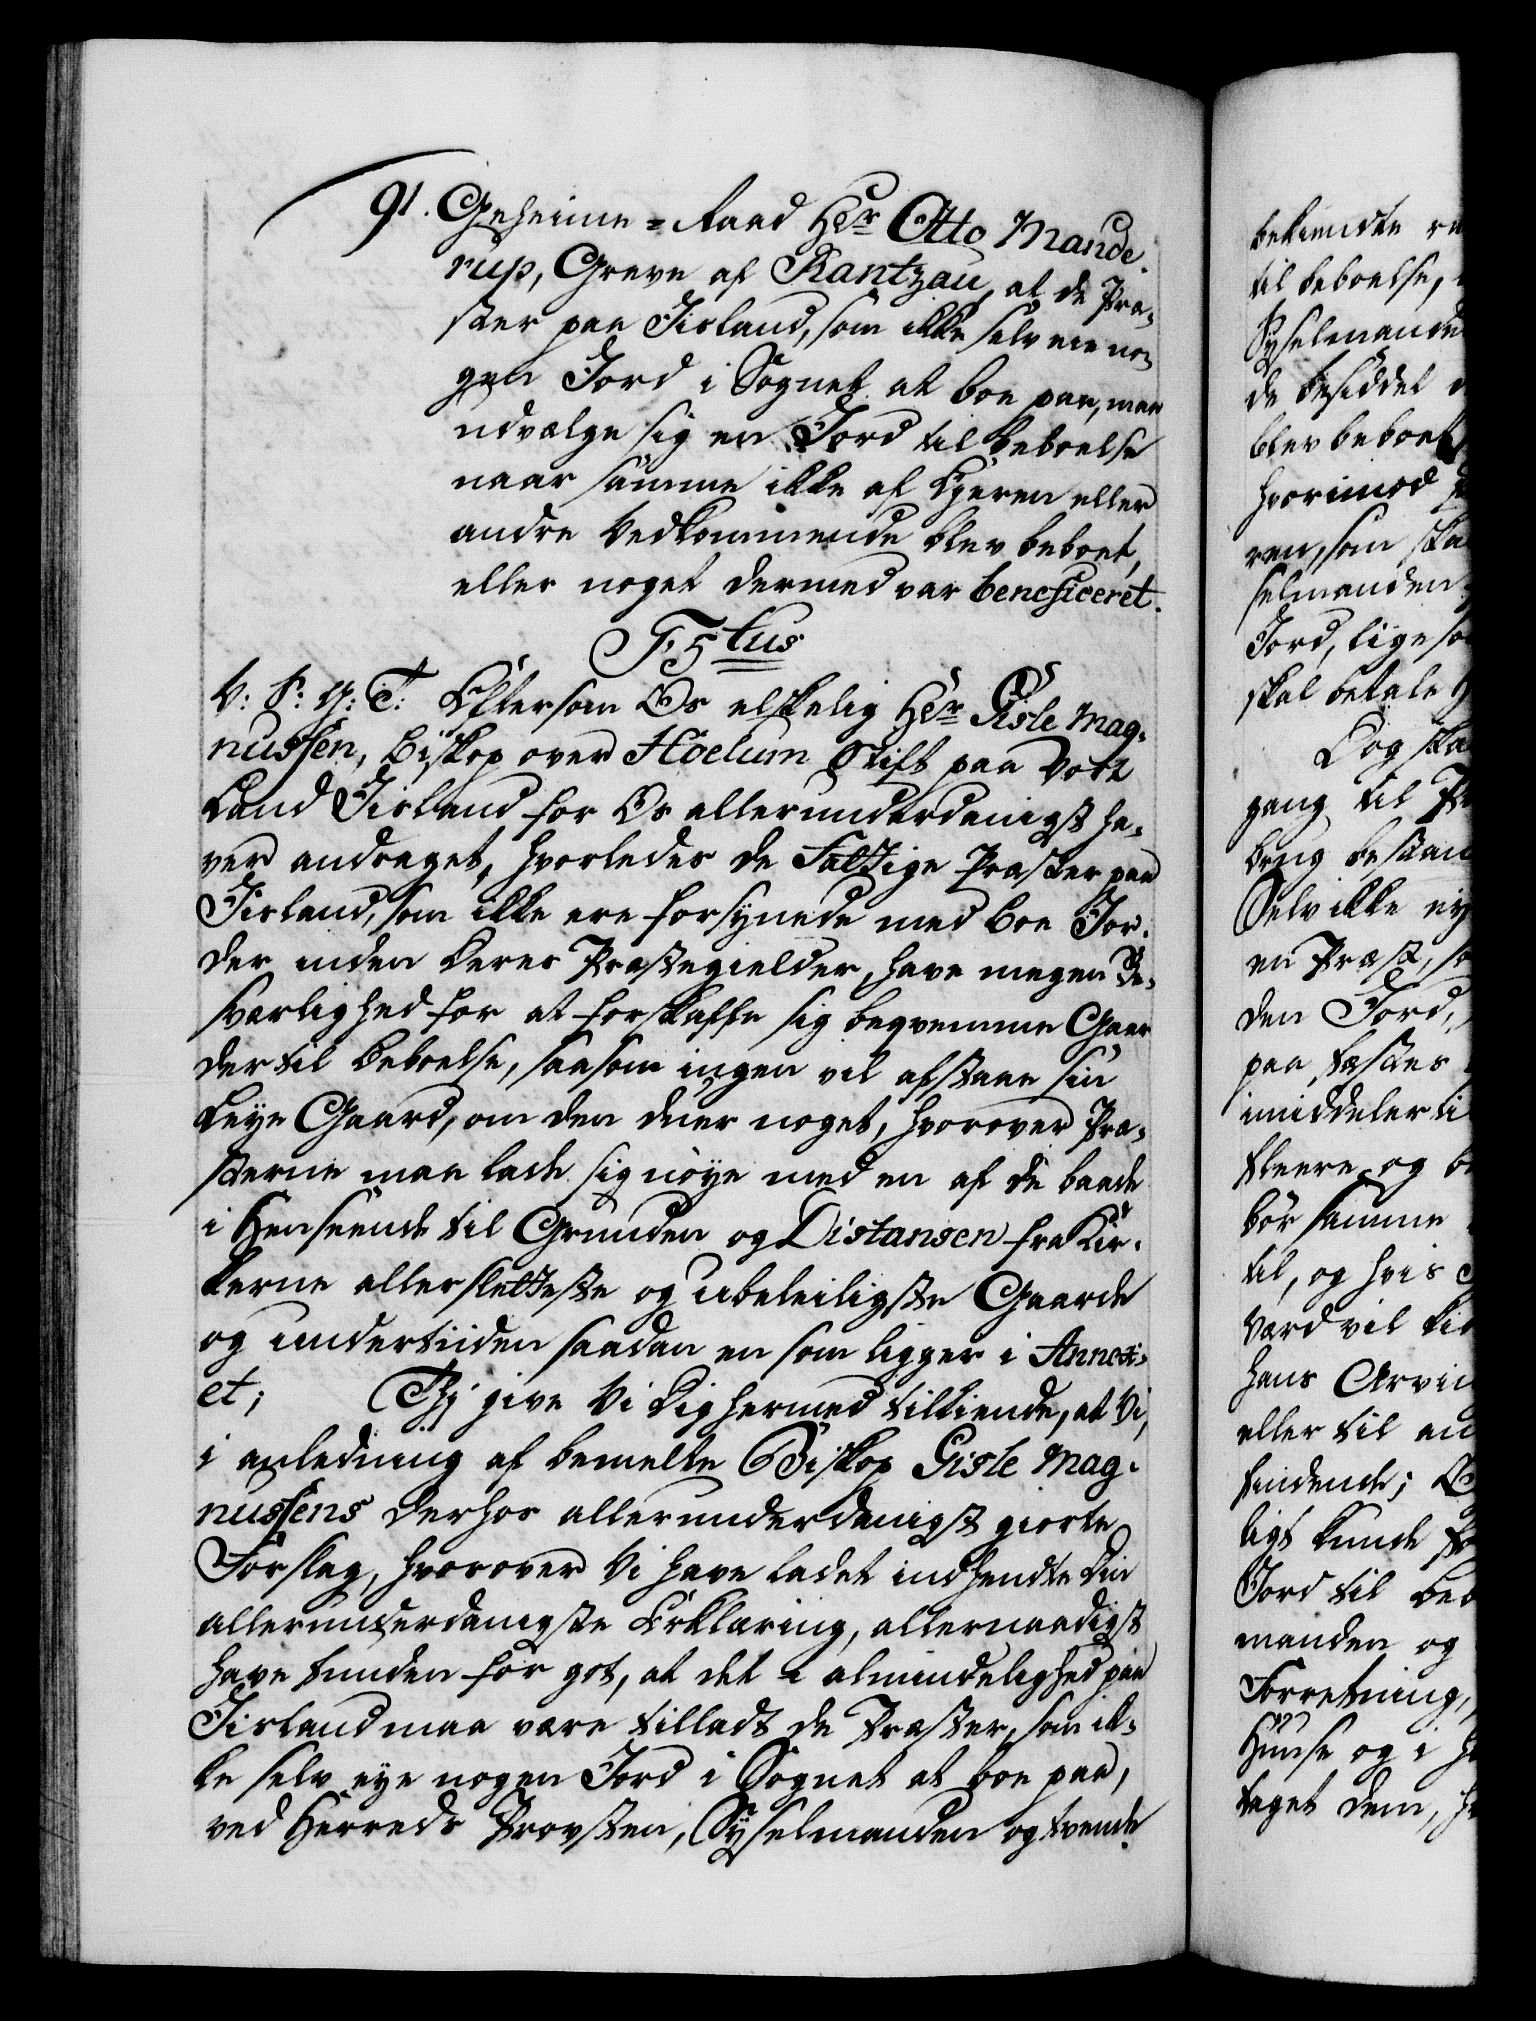 91. Geheime-Raad Hr Otto Mande-
rup, Greve af Rantzau, at de Præ-
ster paa Iisland, som ikke selv eie no-
gen Jord i Sognet at boe paa, maa
udvælge sig en Jord til beboelse
naar samme ikke af Ejeren eller
andre Vedkommende blev beboet,
eller noget dermed var beneficeret.
F. 5tus
V: S: G: T: Eftersom Os elskelig Hr Gisle Mag-
nussen, Biskop over Hoelum Stift paa Vort
Land Iisland for Os allerunderdanigst ha-
ver andraget, hvorledes de Fattige Præster paa
Iisland, som ikke ere forsynede med boe Jor-
der inden deres Præstegielder, have megen Be-
sværlighed for at forskaffe sig beqvemme Gaar
der til Beboelse, saasom ingen vil afstaae sin
Leye Gaard, om den duer noget, hvorover Præ-
sterne maa lade sig nöye med en af de baade
i Henseende til Grunden og Distansen fra Kir-
kerne allersletteste og ubeleiligste Gaarde
og undertiiden saadan en som ligger i Annex-
et; Thj give Vi Dig hermed tilkiende, at Vi,
i anledning af bemelte Biskop Gisle Mag-
nussens derhos allerunderdanigst giorte
Forslag, hvorover Vi have ladet indhendte Din
allerunderdanigste Erklæring, allernaadigst
have funden for got, at det i almindelighed paa
Iisland maa være tilladt de Præster, som ik-
ke selv eye nogen Jord i Sognet at boe paa,
ved Herreds Provsten, Sysselmanden og tvende
bekiendte
til beboelse,
Sysselmanden
de besiddet
blev beboet
hvorimod
ren, som ska
selmanden
Jord, lige so
skal betale
Dog ska
gang til
brug bestaa
Selv ikke
en Præst, so
den Jord,
paa, fæstes
imiddelerti
fleere og
bör samme
til, og hvis
Værd vil
hans Arvin
eller til an
findende;
ligt kunde
Jord til beb
manden og
Forretning,
Huuse og i
taget dem,